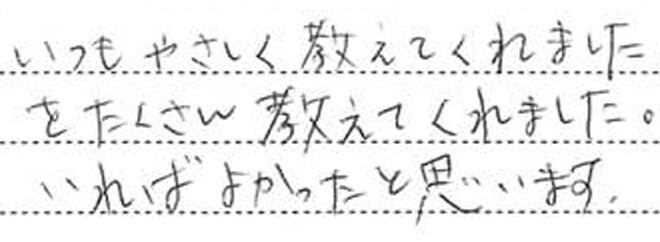 いつもやさしく教えてくれました
をたくさん教えてくれました。
いればよかったと思います.